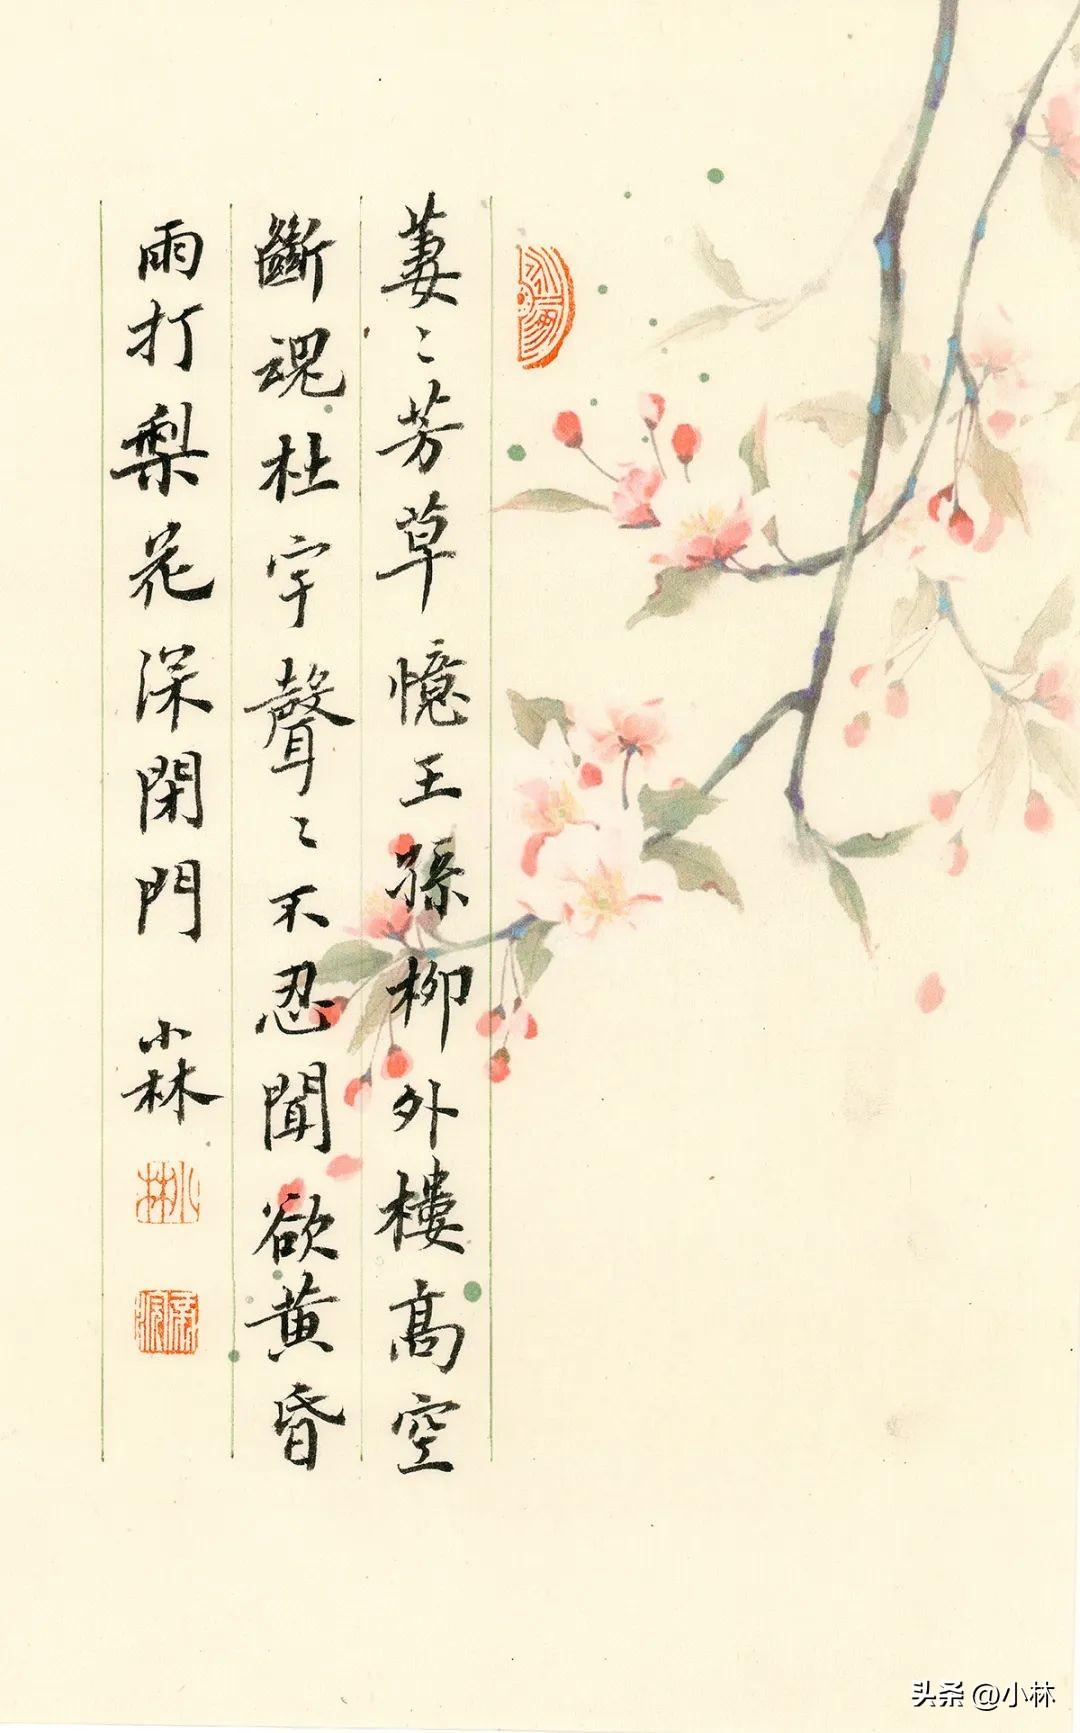 萋〻芳草憶王孫柳外樓高空
斷魂杜宇聲〻不忍聞欲黄昏
雨打梨花深閉門 小林
小林
头条 @小林